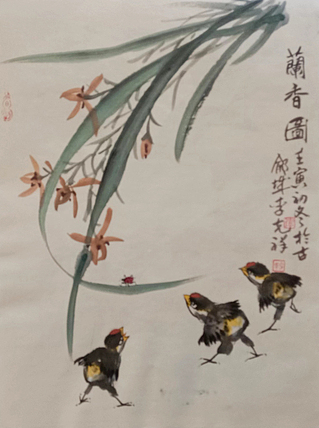 蘭香圖
壬寅初冬於古
彭城李克祥